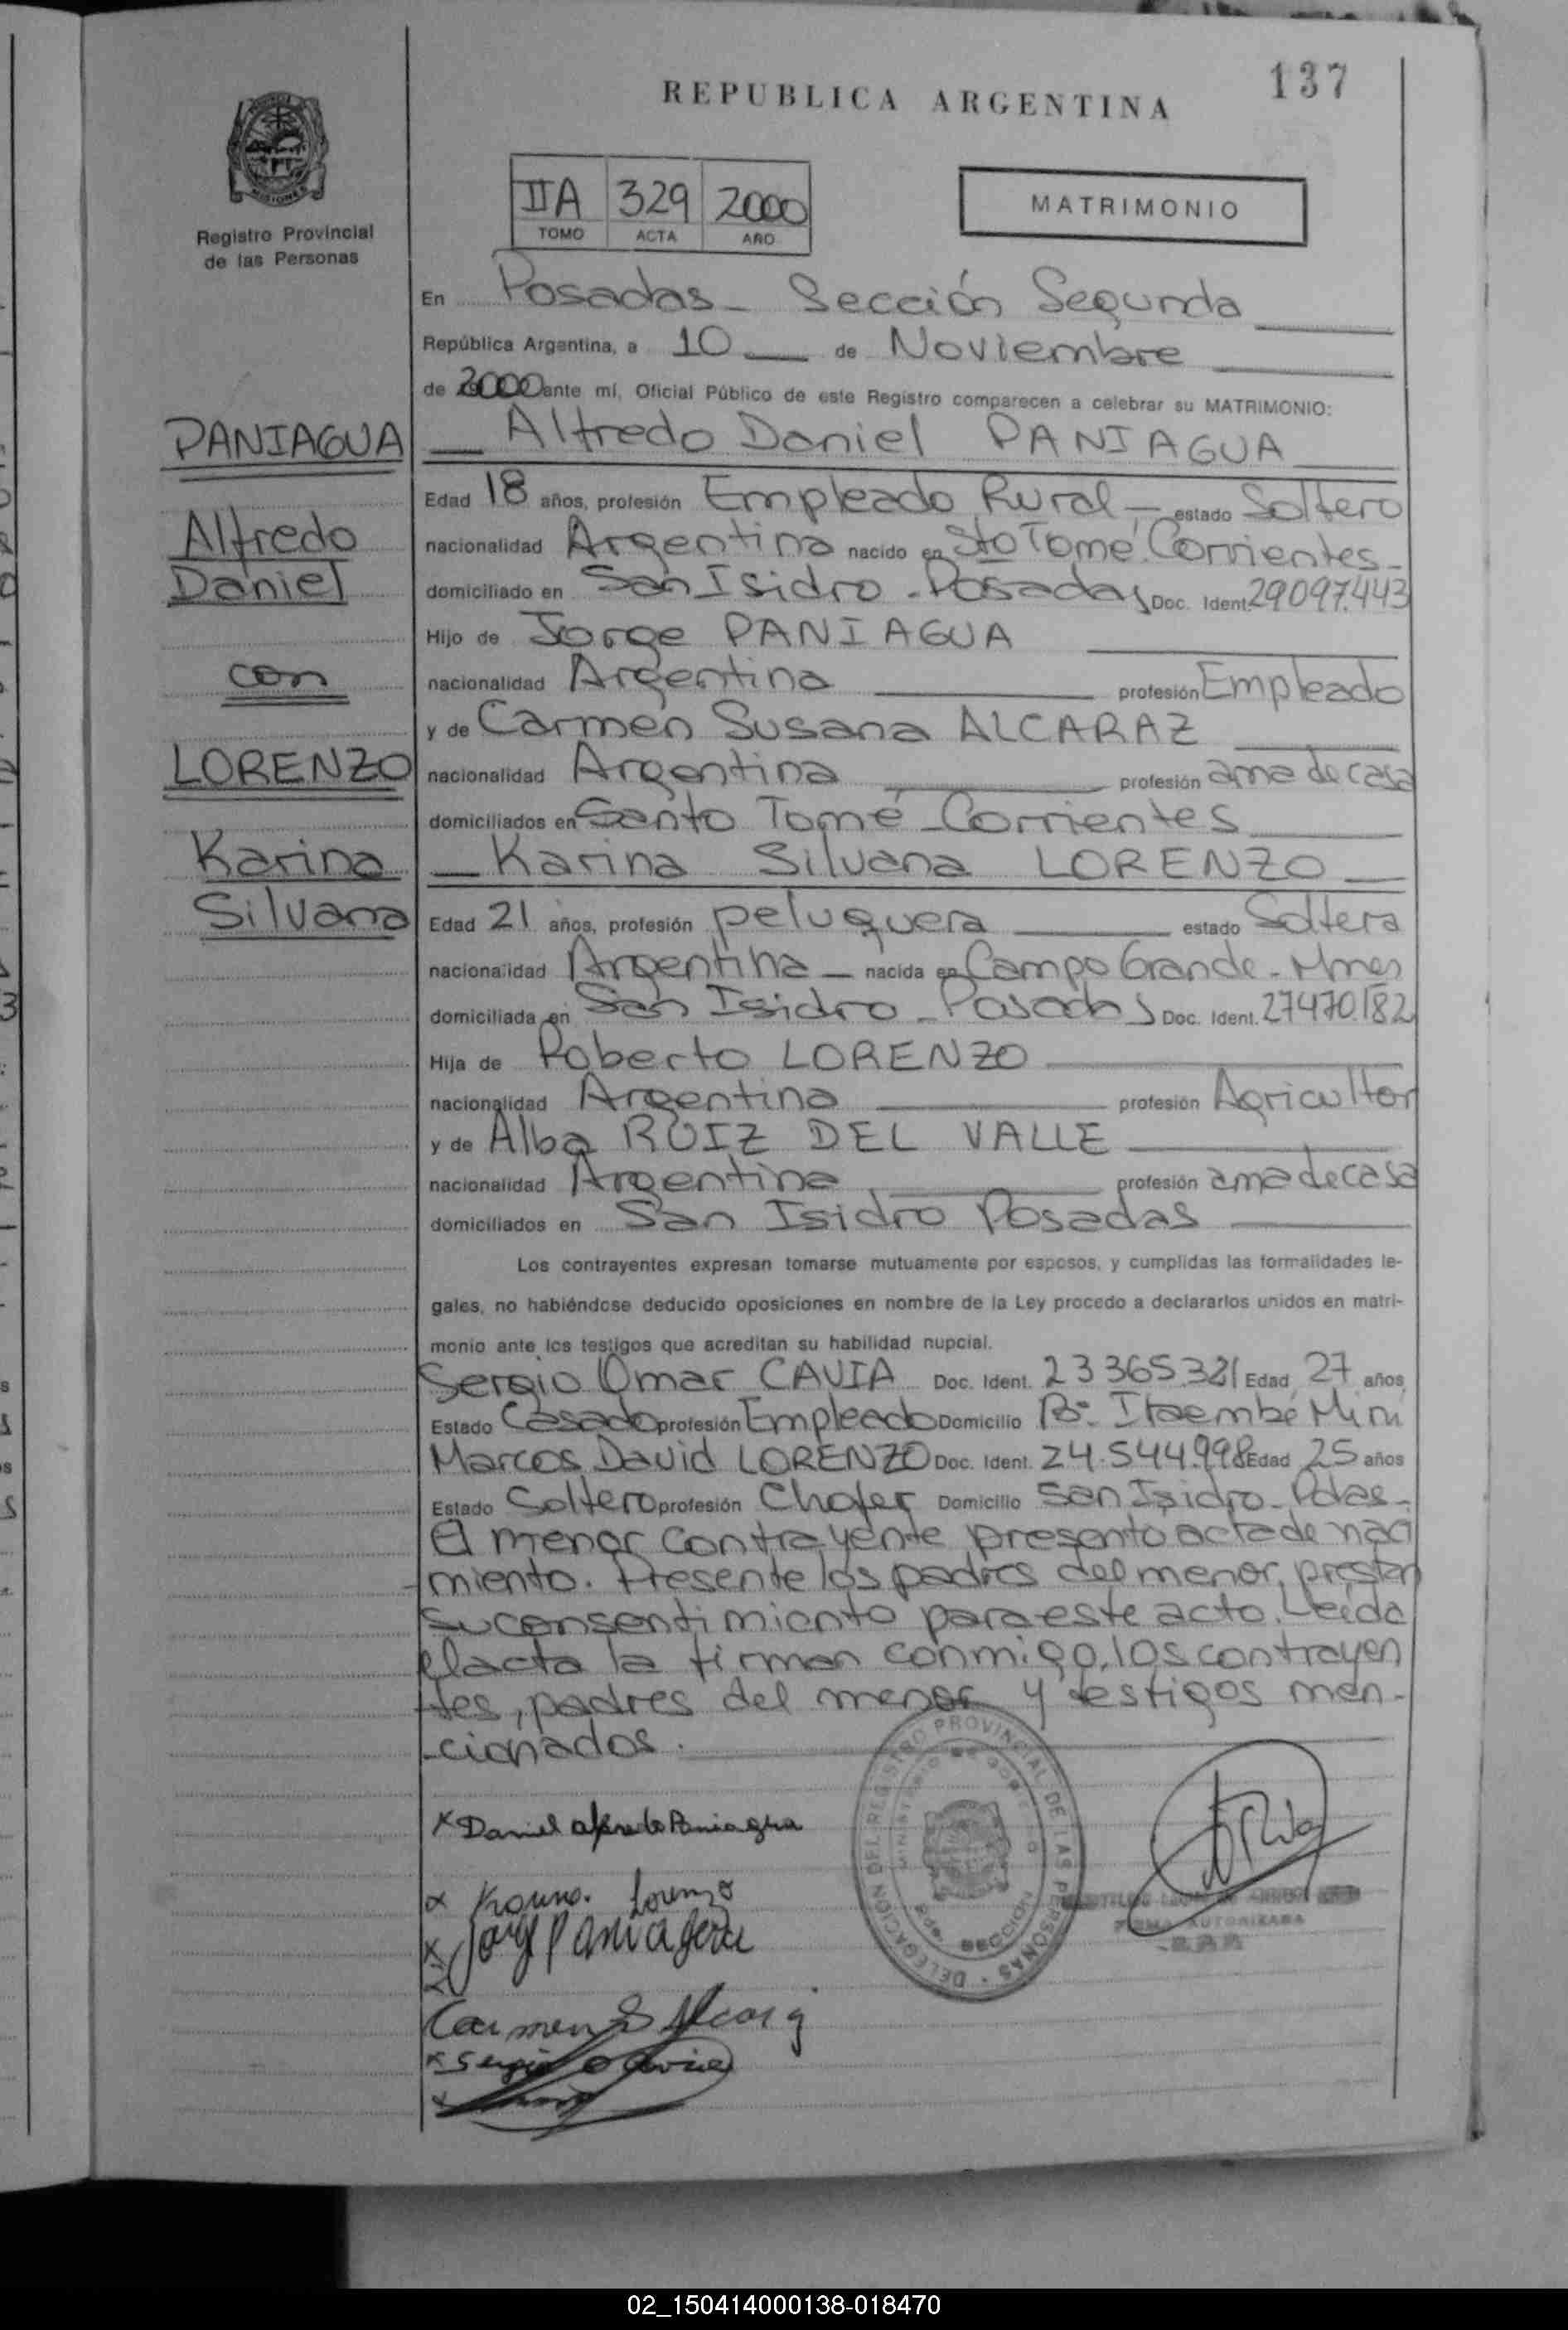 137
REPUBLICA ARGENTINA
MISIONES
Registro Provincial
de las Personas
IIA 329 2000
TOMO ACTA AÑO
MATRIMONIO
En Posadas - Sección Segunda
República Argentina, a 10 de Noviembre
de 2000 ante mí, Oficial Público de este Registro comparecen a celebrar su MATRIMONIO:
PANIAGUA
Alfredo
Daniel
con
LORENZO
Karina
Silvana
Alfredo Daniel PANIAGUA
Edad 18 años, profesión Empleado Rural - estado Soltero
nacionalidad Argentina nacido en Sto Tomé. Corrientes -
domiciliado en San Isidro - Posadas Doc. Ident. 29.097.443
Hijo de Jorge PANIAGUA
nacionalidad Argentina profesión Empleado
y de Carmen Susana ALCARAZ
nacionalidad Argentina profesión ama de casa
domiciliados en Santo Tomé - Corrientes
Karina Silvana LORENZO
Edad 21 años, profesión peluquera estado Soltera
nacionalidad Argentina - nacida en Campo Grande - Mnes
domiciliada en San Isidro - Posadas Doc. Ident. 27.470.182
Hija de Roberto LORENZO
nacionalidad Argentina profesión Agricultor
y de Alba RUIZ DEL VALLE
nacionalidad Argentina profesión ama de casa
domiciliados en San Isidro Posadas
Los contrayentes expresan tomarse mutuamente por esposos, y cumplidas las formalidades le-
gales, no habiéndose deducido oposiciones en nombre de la Ley procedo a declararlos unidos en matri-
monio ante los testigos que acreditan su habilidad nupcial.
Sergio Omar CAVIA Doc. Ident. 23.365.321 Edad 27 años
Estado Casado profesión Empleado Domicilio B° Itaembé Miní
Marcos David LORENZO Doc. Ident. 24.544.998 Edad 25 años
Estado Soltero profesión Chofer Domicilio San Isidro - Pdas -
El menor contrayente presento acta de naci
miento. Presente los padres del menor, prestan
su consentimiento para este acto. Leida
el acta la firman conmigo, los contrayen
tes, padres del menor y testigos men-
-cionados.
x Daniel alfredo Paniagua
x Karina. Lorenzo
x Jorge Paniagua
Carmen S Alcaraz
x Sergio O Cavia
DELEGACION DEL REGISTRO PROVINCIAL DE LAS PERSONAS
MINISTERIO DE GOBIERNO
2da. SECCION
FIRMA AUTORIZADA
02_150414000138-018470